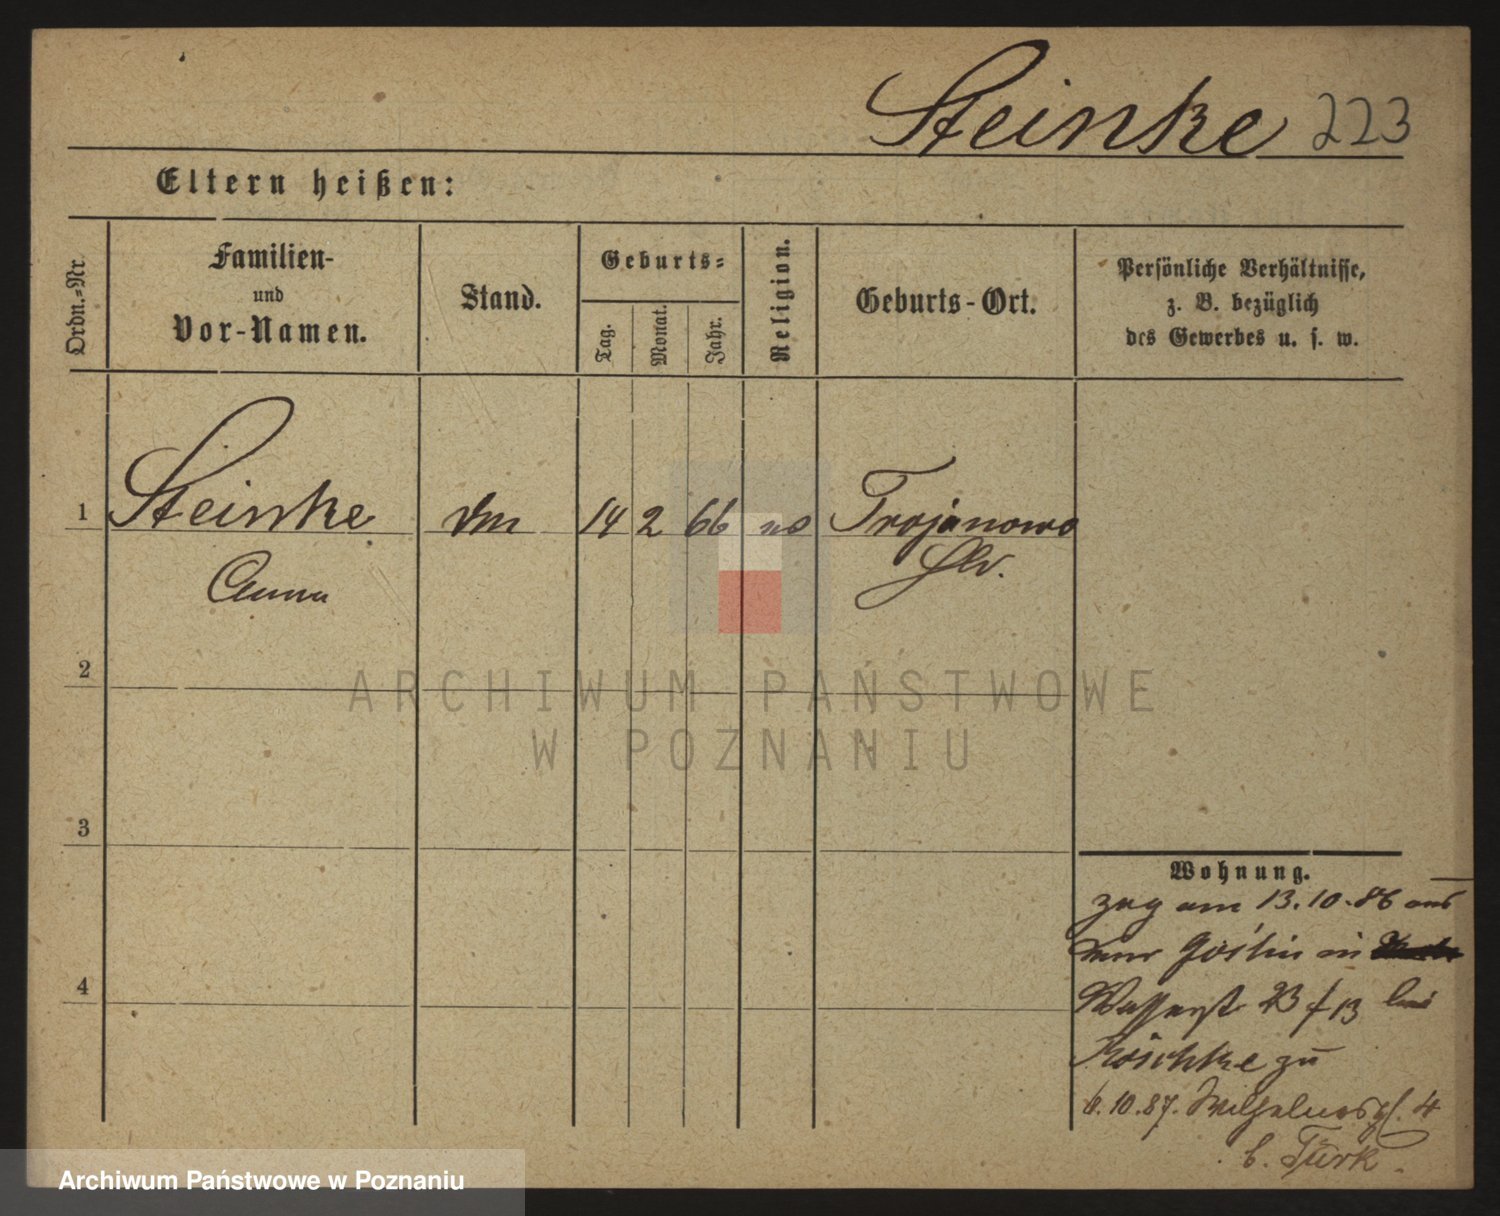 Steinke 223
Eltern heißen:
Ordn.-Nr.
Familien-
und
Vor-Namen.
Stand.
Geburts-
Tag.
Monat.
Jahr.
Religion.
Geburts-Ort.
Persönliche Verhältnisse,
z. B. bezüglich
des Gewerbes u. s. w.
1 Steinke 14 2 66 Trojanowo
Anna
2
ARCHIWUM PAŃSTWOWE
W POZNANIU
3
4
Wohnung.
zug am 13.10.86 aus
in
Wasserstr 13 bei
Köschke zu
10.87. Wilhelmspl. 4
b. Türk.
Archiwum Państwowe w Poznaniu